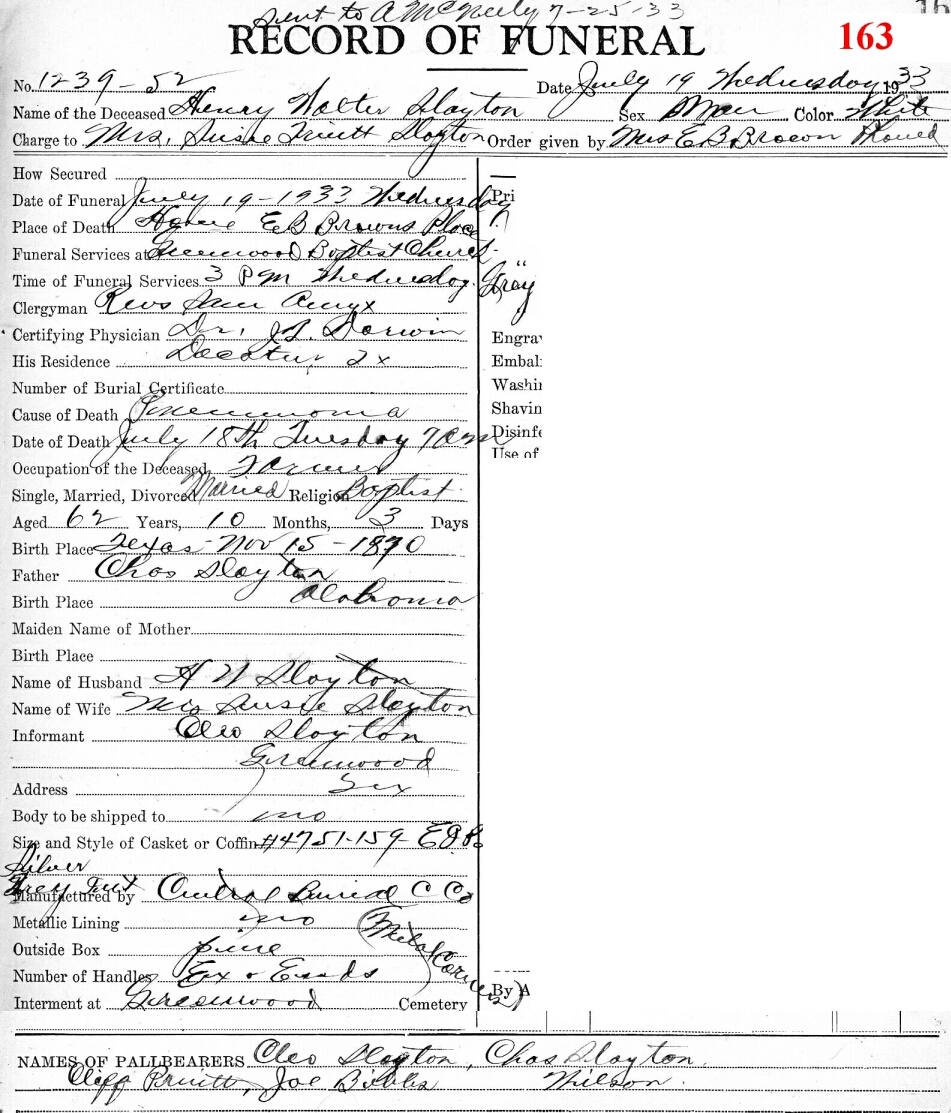 sent to A McNeely 7-25-33
RECORD OF FUNERAL 163
No. 1239-52 Date July 19 Wednesday 1933
Name of the Deceased Henry Walter Slayton Sex Man Color White
Charge to Mrs. Susie Truitt Slayton Order given by Mrs E B Brown Phoned
How Secured
Date of Funeral July 19-1933 Wednesday
Pri
Place of Death Home E B Browns Place
Funeral Services at Greenwood Baptist Church
Time of Funeral Services 3 P M Wednesday.
Gray
Clergyman Revs Amyx
Certifying Physician Dr. J.L. Dorwin
Engra
His Residence Decatur Tx
Embal
Number of Burial Certificate
Washin
Cause of Death Pneumonia
Shavin
Date of Death July 18th Tuesday 7 am
Disinfe
Occupation of the Deceased Farmer
Use of
Single, Married, Divorced Married Religion Baptist
Aged 62 Years, 10 Months, 3 Days
Birth Place Texas - Nov 15 - 1870
Father Chas Slayton
Birth Place Alabama
Maiden Name of Mother
Birth Place
Name of Husband H W Slayton
Name of Wife Mrs Susie Slayton
Informant Cleo Slayton
Greenwood
Address Tex
Body to be shipped to no
Size and Style of Casket or Coffin #4751-159-
Silver
Grey
Manufactured by Central Burial C Co
Metallic Lining no
(Metal Corners)
Outside Box pine
Number of Handles Ex & Ends
By A
Interment at Greenwood Cemetery
NAMES OF PALLBEARERS Cleo Slayton, Chas Slayton.
Cliff Pruitt, Joe Bibbs Wilson.